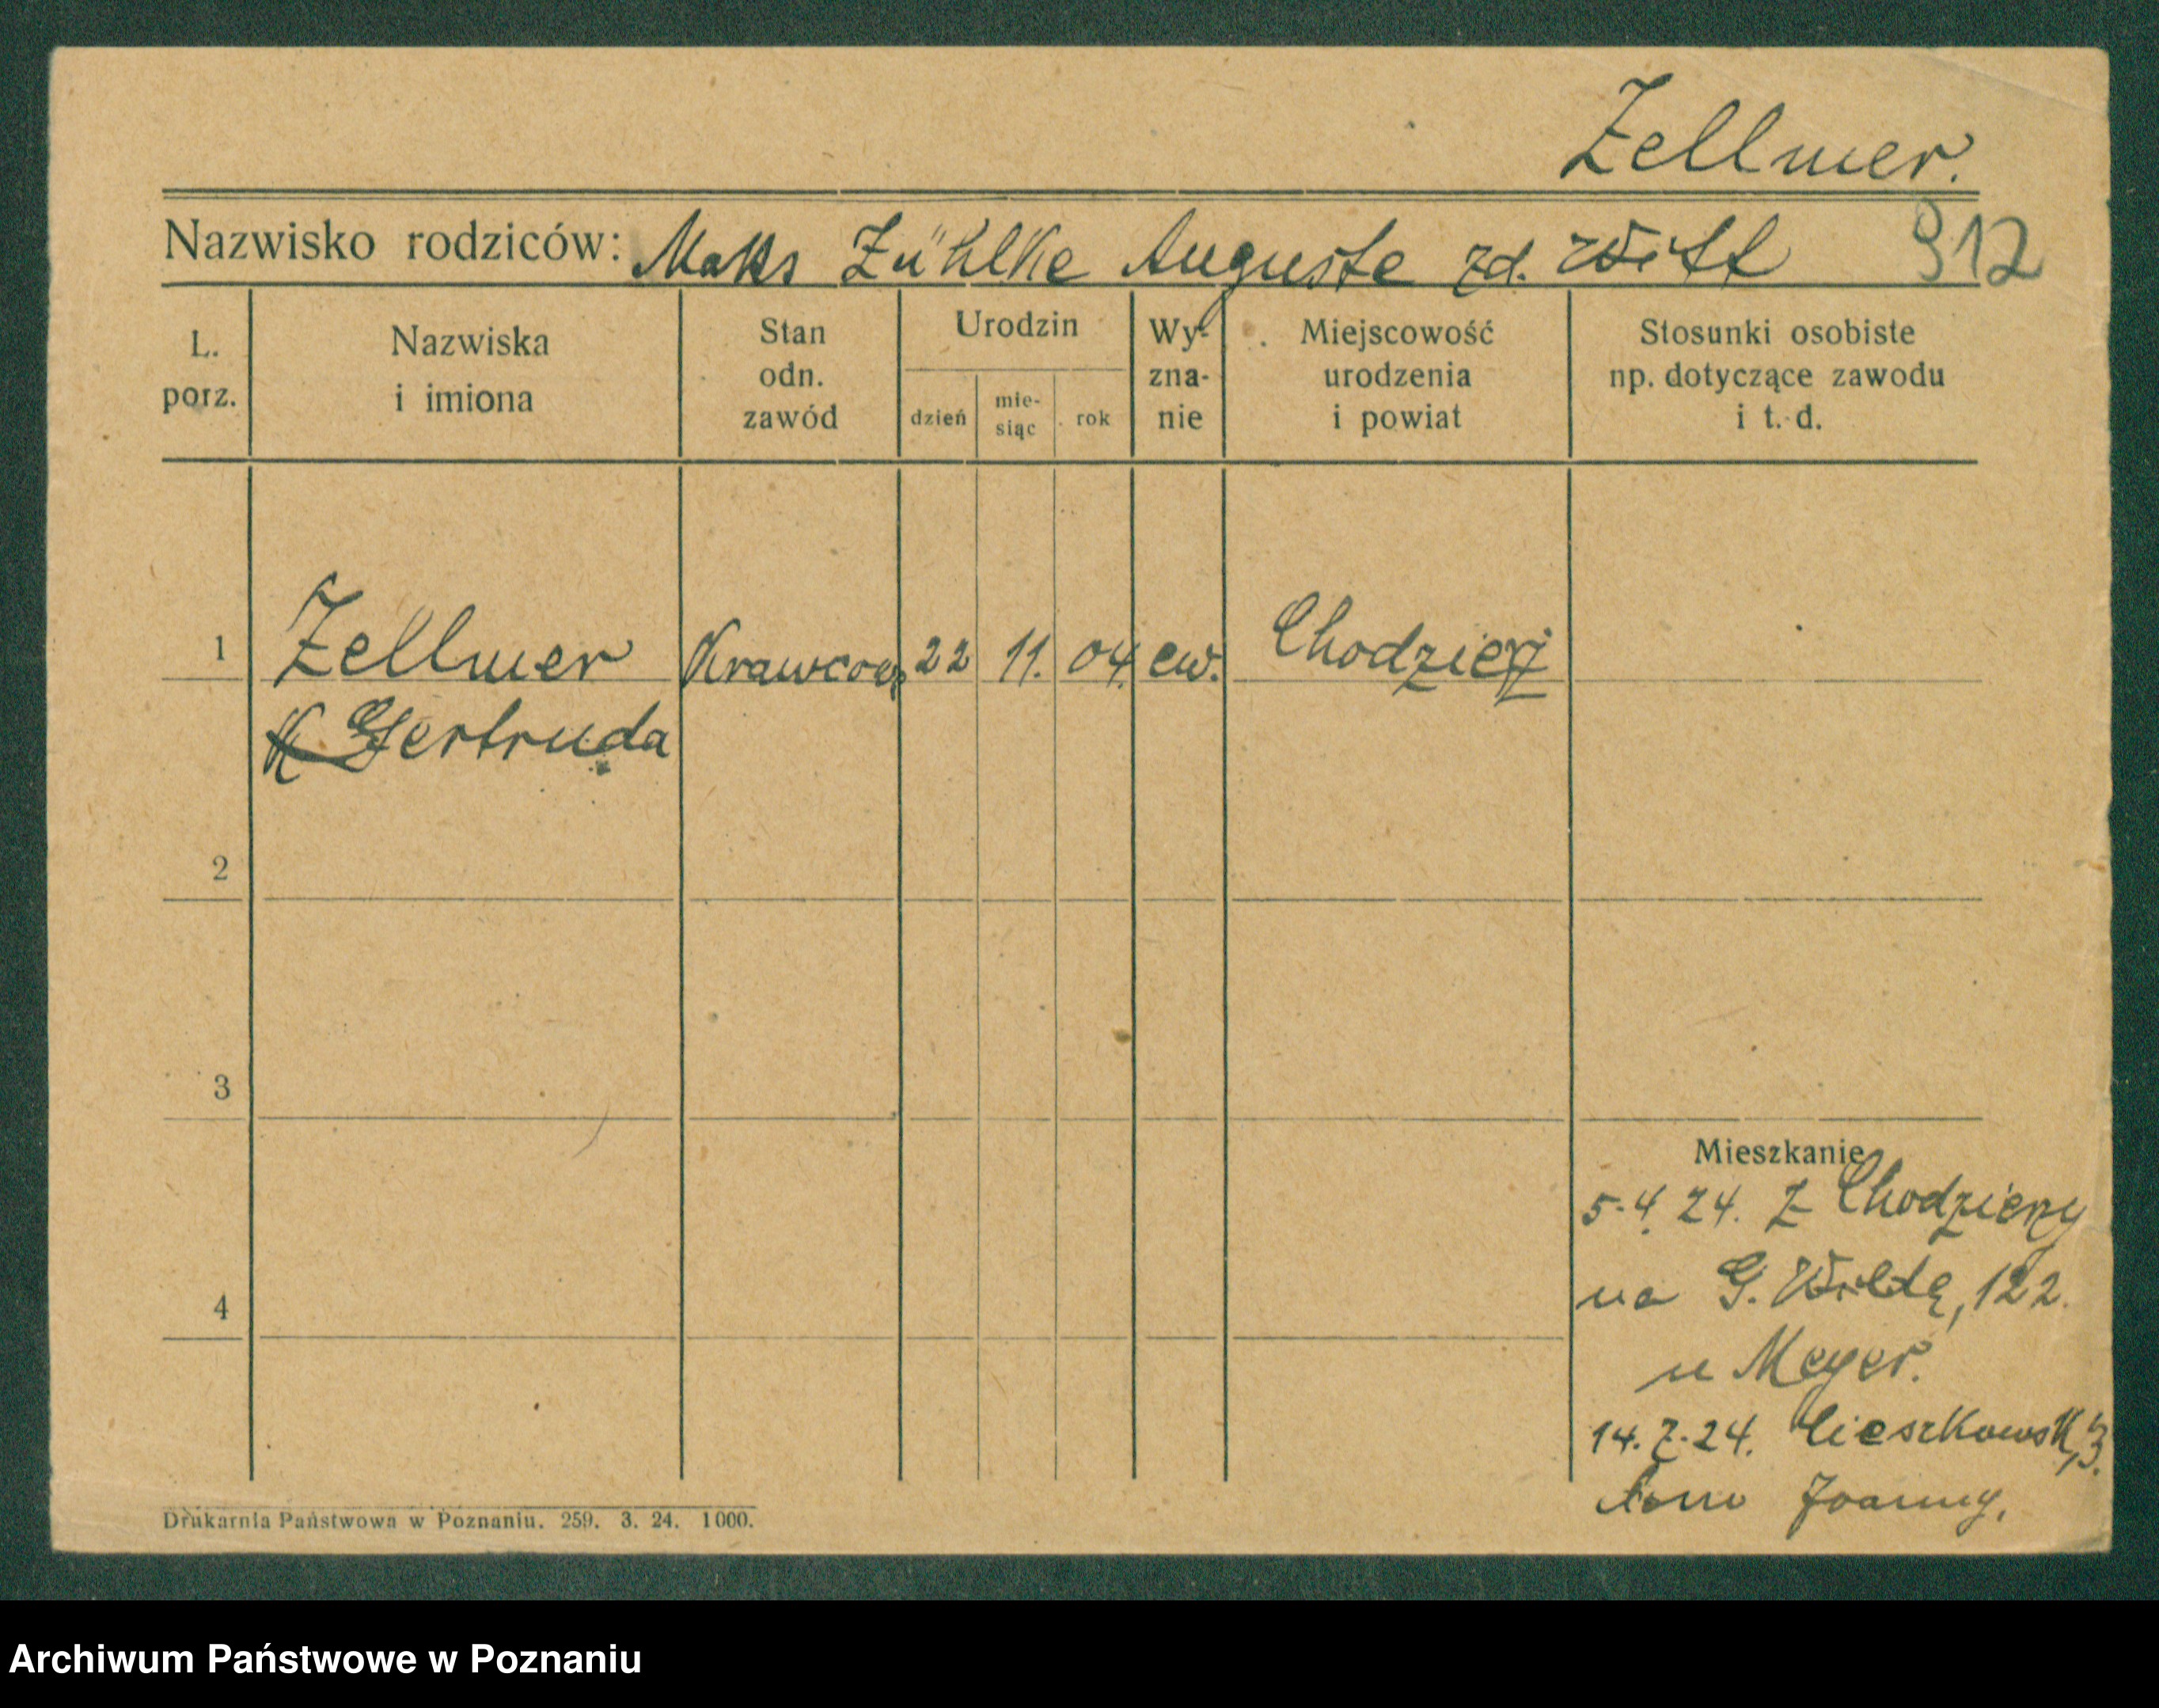 Zellmer.
Nazwisko rodziców: Maks Zühlke Auguste zd. Witt 912
L. porz.
Nazwiska i imiona
Stan odn. zawód
Urodzin
dzień
mie-siąc
rok
Wy-zna-nie
Miejscowość urodzenia i powiat
Stosunki osobiste np. dotyczące zawodu i t. d.
1 Zellmer Krawcowa 22 11. 04. ew. Chodzież
Gertruda
2
3
4
Mieszkanie
5.4.24. Z Chodzieży
na G. Wildę, 122.
u Meyer.
14.7.24. Cieszkowsk, 3.
Joanny,
Drukarnia Państwowa w Poznaniu. 259. 3. 24. 1000.
Archiwum Państwowe w Poznaniu